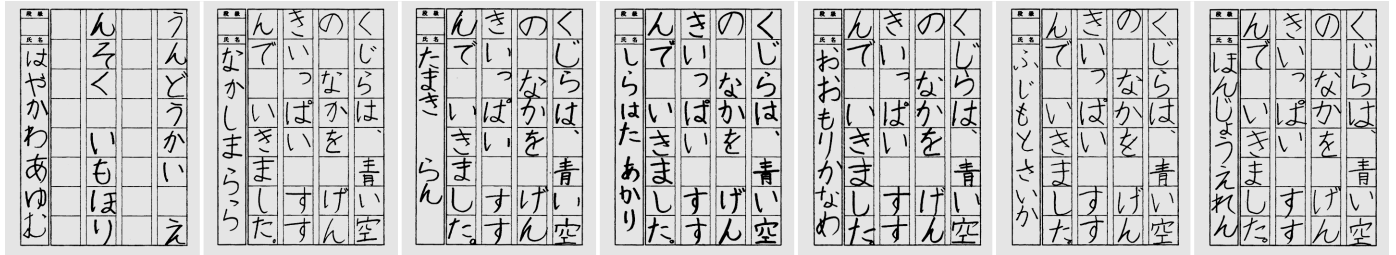 うんどうかい え
んそく いもほり
段級
氏名
はやかわあゆむ
くじらは、青い空
の なかを げん
きいっぱい すす
んで いきました。
段級
氏名
なかしまらっら
くじらは、青い空
の なかを げん
きいっぱい すす
んで いきました。
段級
氏名
たまき らん
くじらは、青い空
の なかを げん
きいっぱい すす
んで いきました。
段級
氏名
しらはた あかり
くじらは、青い空
の なかを げん
きいっぱい すす
んで いきました。
段級
氏名
おおもりかなめ
くじらは、青い空
の なかを げん
きいっぱい すす
んで いきました。
段級
氏名
ふじもとさいか
くじらは、青い空
の なかを げん
きいっぱい すす
んで いきました。
段級
氏名
ほんじょうえれん